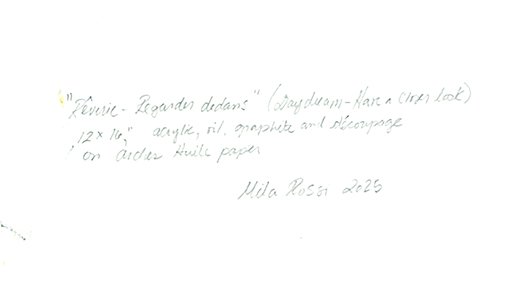 "Rêverie - Regarder dedans" (Daydream - Have a closer look)
12 x 16," acrylic, oil, graphite and découpage
on Arches Huile paper
Mila Rossi 2025